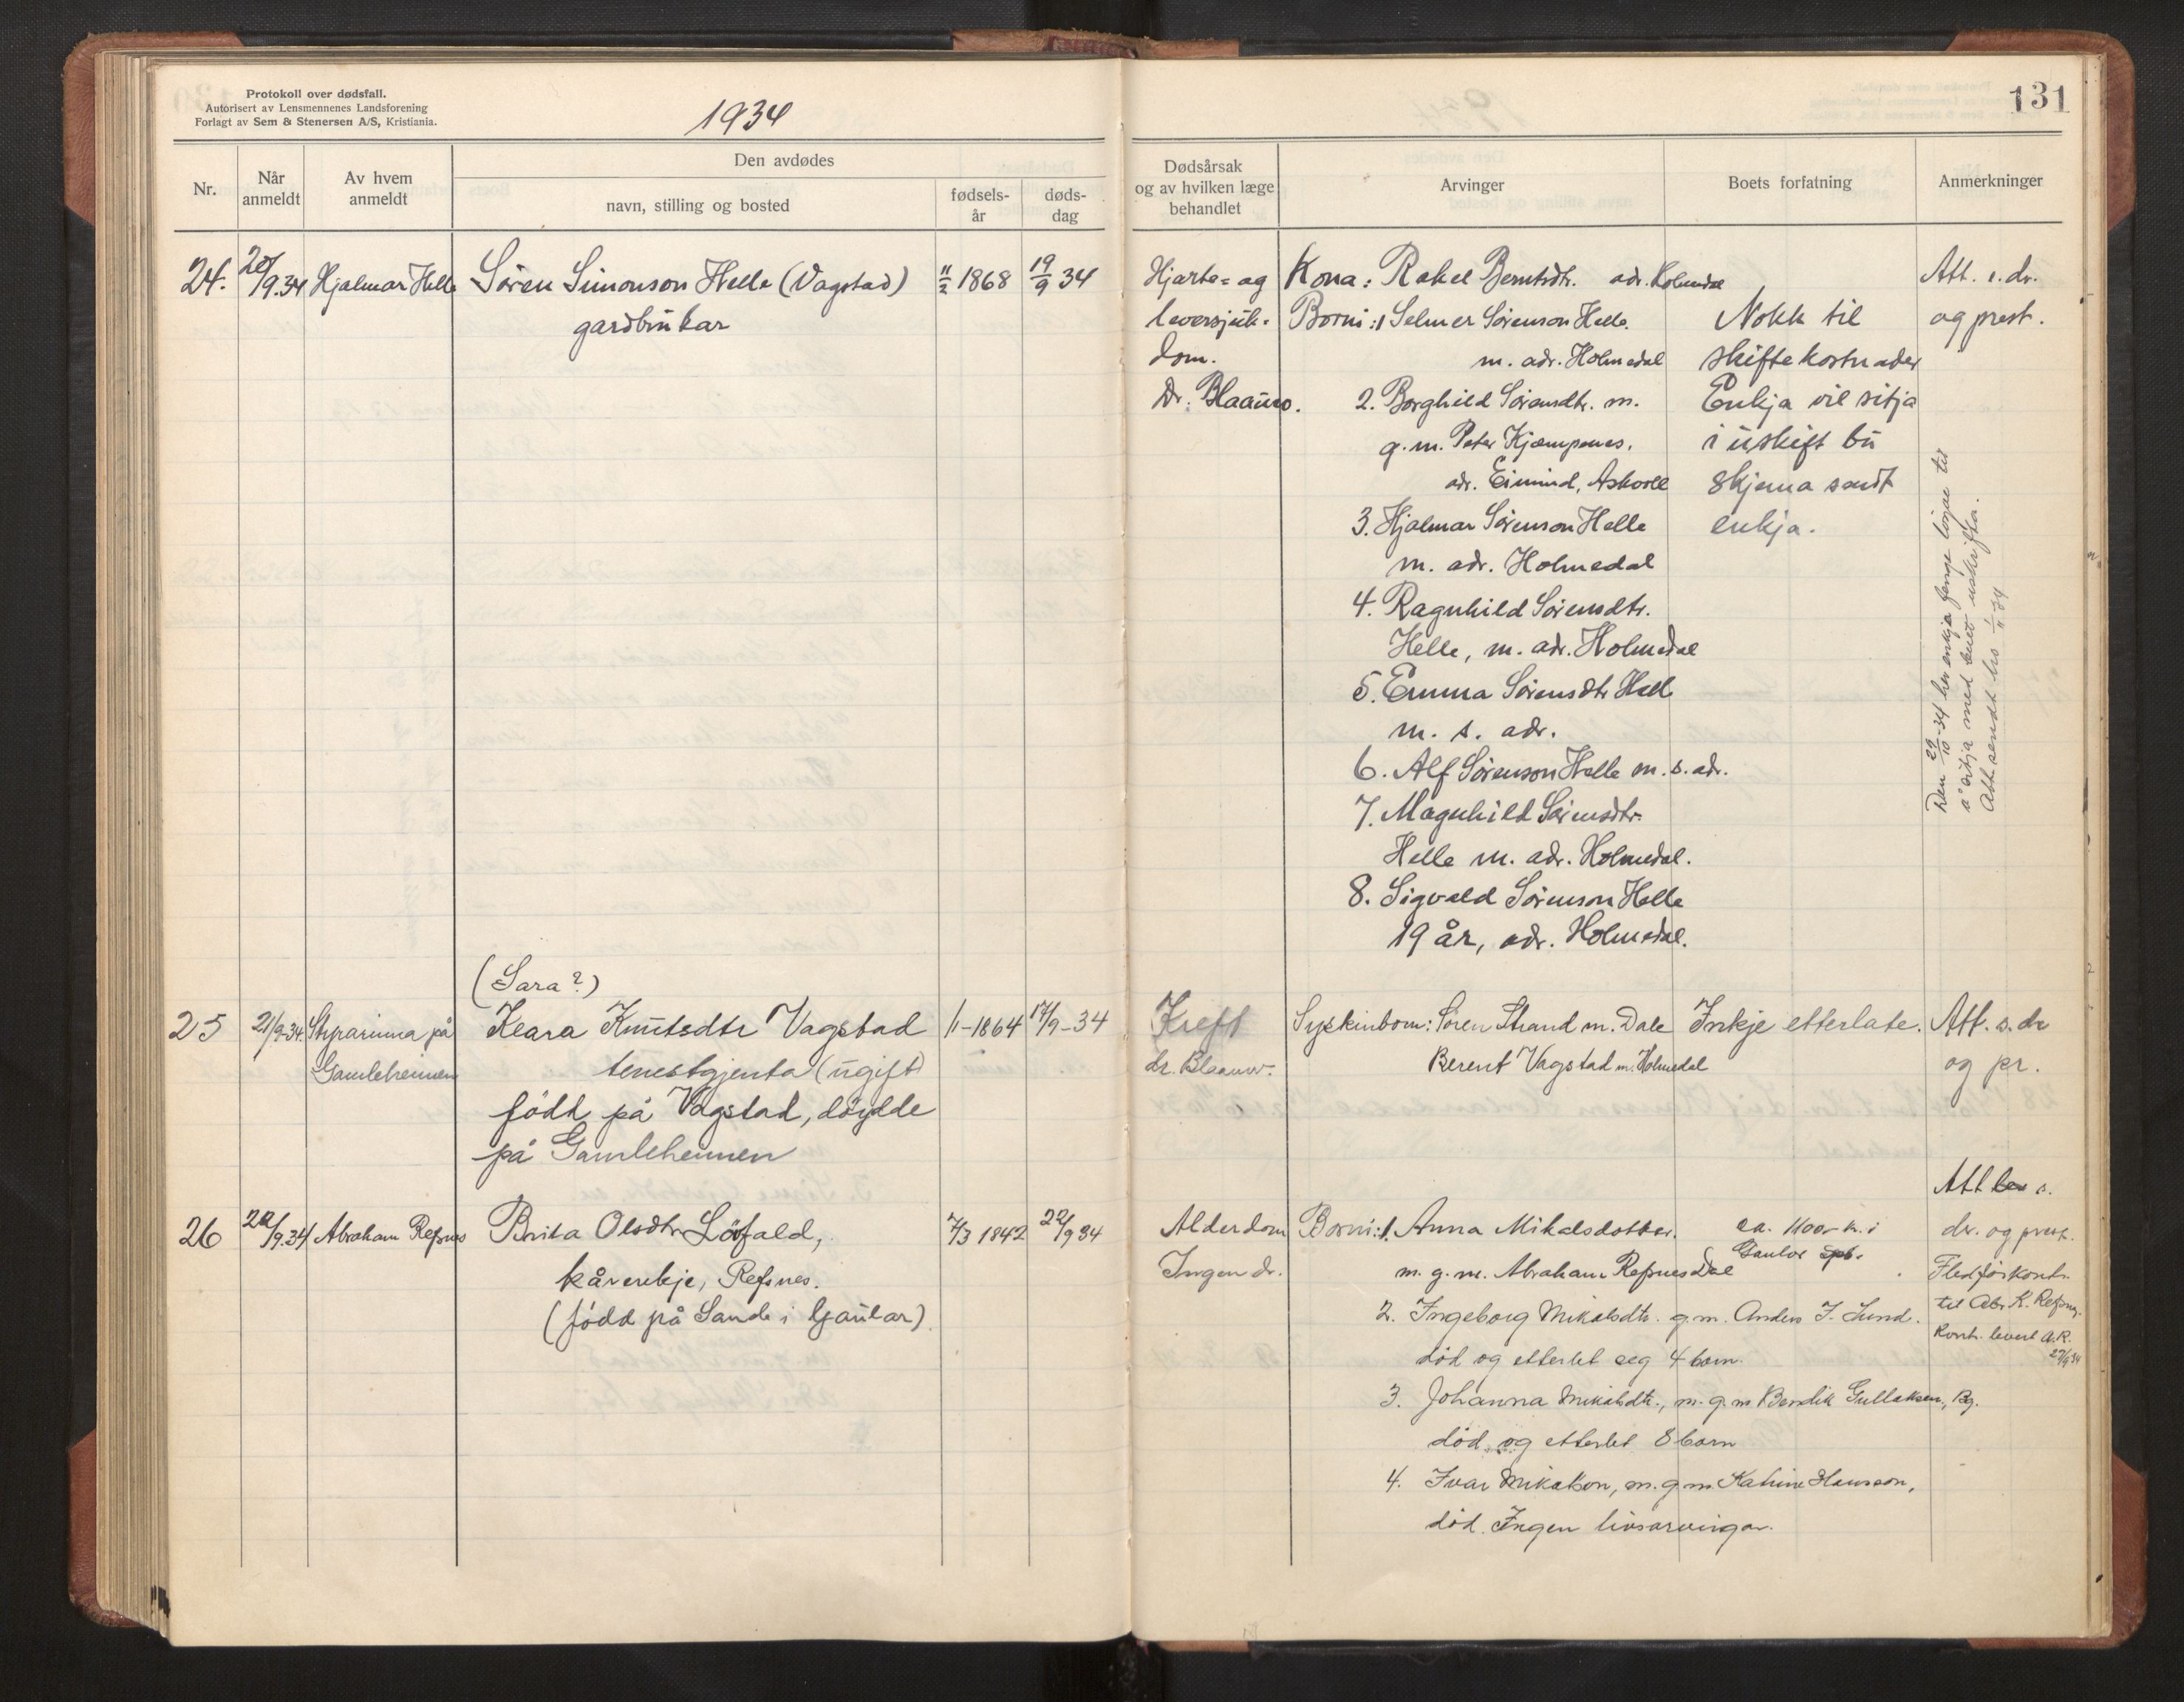 Protokoll over dødsfall.
Autorisert av Lensmennenes Landsforening
Forlagt av Sem & Stenersen A/S, Kristiania.
1934
131
Nr.
Når anmeldt
Av hvem anmeldt
Den avdødes
navn, stilling og bosted
fødsels-år
døds-dag
Dødsårsak og av hvilken læge behandlet
Arvinger
Boets forfatning
Anmerkninger
24.
20/9.34
Hjalmar Helle
Søren Simonson Helle (Vagstad)
gardbrukar
11/2 1868
19/9 34
Hjarte- og
leversjuk-
dom.
Dr. Blaauw.
Kona: Rakel Berntsdtr. adr. Holmedal
Borni: 1 Selmer Sørenson Helle.
m. adr. Holmedal
2. Borghild Sørensdtr. m.
g.m. Peter Kjempenes,
adr. Eimind, Askvoll
3. Hjalmar Sørenson Helle
m. adr. Holmedal
4. Ragnhild Sørensdtr.
Helle, m. adr. Holmedal
5. Emma Sørensdtr Helle
m. s. adr.
6. Alf Sørenson Helle m. s. adr.
7. Magnhild Sørensdtr.
Helle m. adr. Holmedal.
8. Sigvald Sørenson Helle
19 år, adr. Holmedal.
Nokk til
skiftekostnader
Enkja vil sitja
i uskift bu
skjema sendt
enkja.
Att. s. dr.
og prest.
Den 29/10-34 her enkja fenge løyve til
å sitja med buet uskifta.
Att. sendt ho 1/11-34
25
21/9-34.
Styrarinna på
Gamleheimen
(Sara?)
Klara Knutsdtr Vagstad
tenestgjenta (ugift)
født på Vagstad, døydde
på Gamleheimen
1/1-1864
17/9-34
Kreft
dr. Blaauw.
Syskinborn: Søren Strand m. Dale
Berent Vagstad m. Holmedal
Inkje etterlate.
Att. s. dr
og pr.
26
22/9.34
Abraham Refsnes
Brita Olsdtr Lövfald,
kårenkje, Refsnes.
(født på Sande i Gaular)
7/3 1842
22/9 34
Alderdom
Ingen dr.
Borni: 1. Anna Mikalsdotter.
m. g. m. Abraham Refsnes Dale
2. Ingeborg Mikalsdtr. g.m. Anders J. Lund.
død og etterlet seg 4 born.
3. Johanna Mikalsdtr., m. g. m Bendik Gullaksen, Bg.
død, og etterlet 8 born
4. Ivar Mikalson, m. g m Katrine Hansson,
død. Ingen livsarvingar.
ca. 1100- kr. i
Gaular spb.
Att s.
dr. og prest.
Fledførkontr.
til Abr. K. Refsnes.
Kontr. levert A.R.
27/9 34